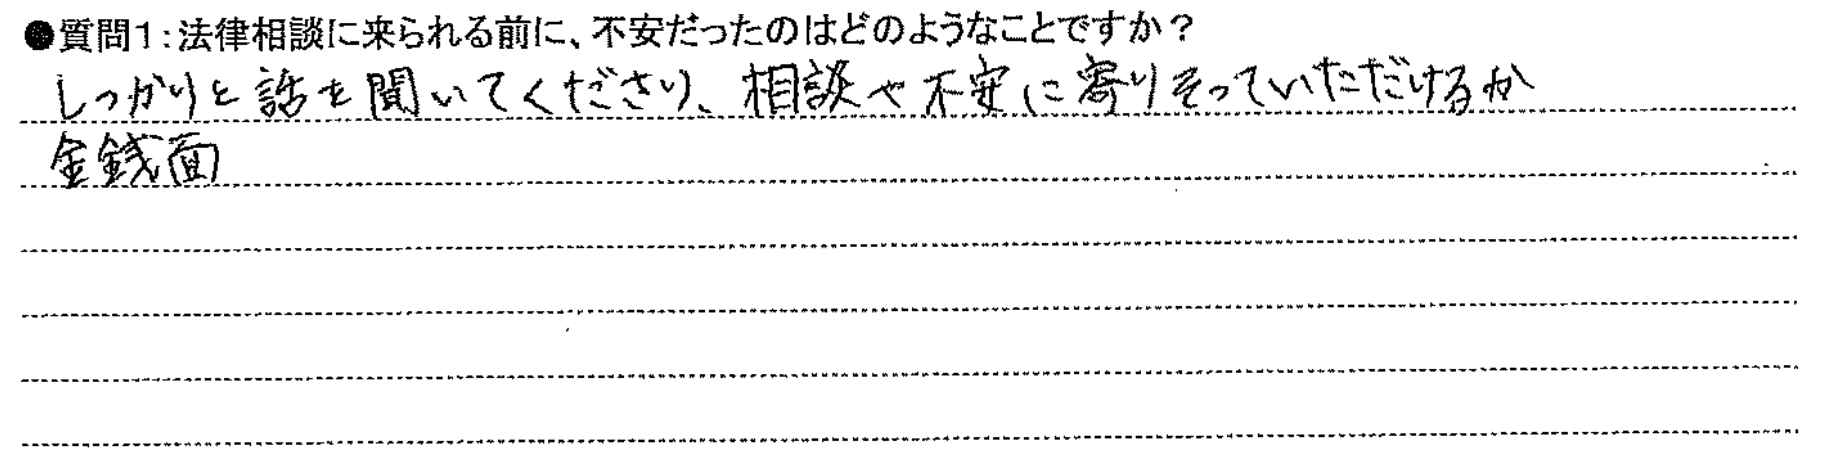 ●質問1:法律相談に来られる前に、不安だったのはどのようなことですか?
しっかりと話を聞いてくださり、相談や不安に寄りそっていただけるか
金銭面